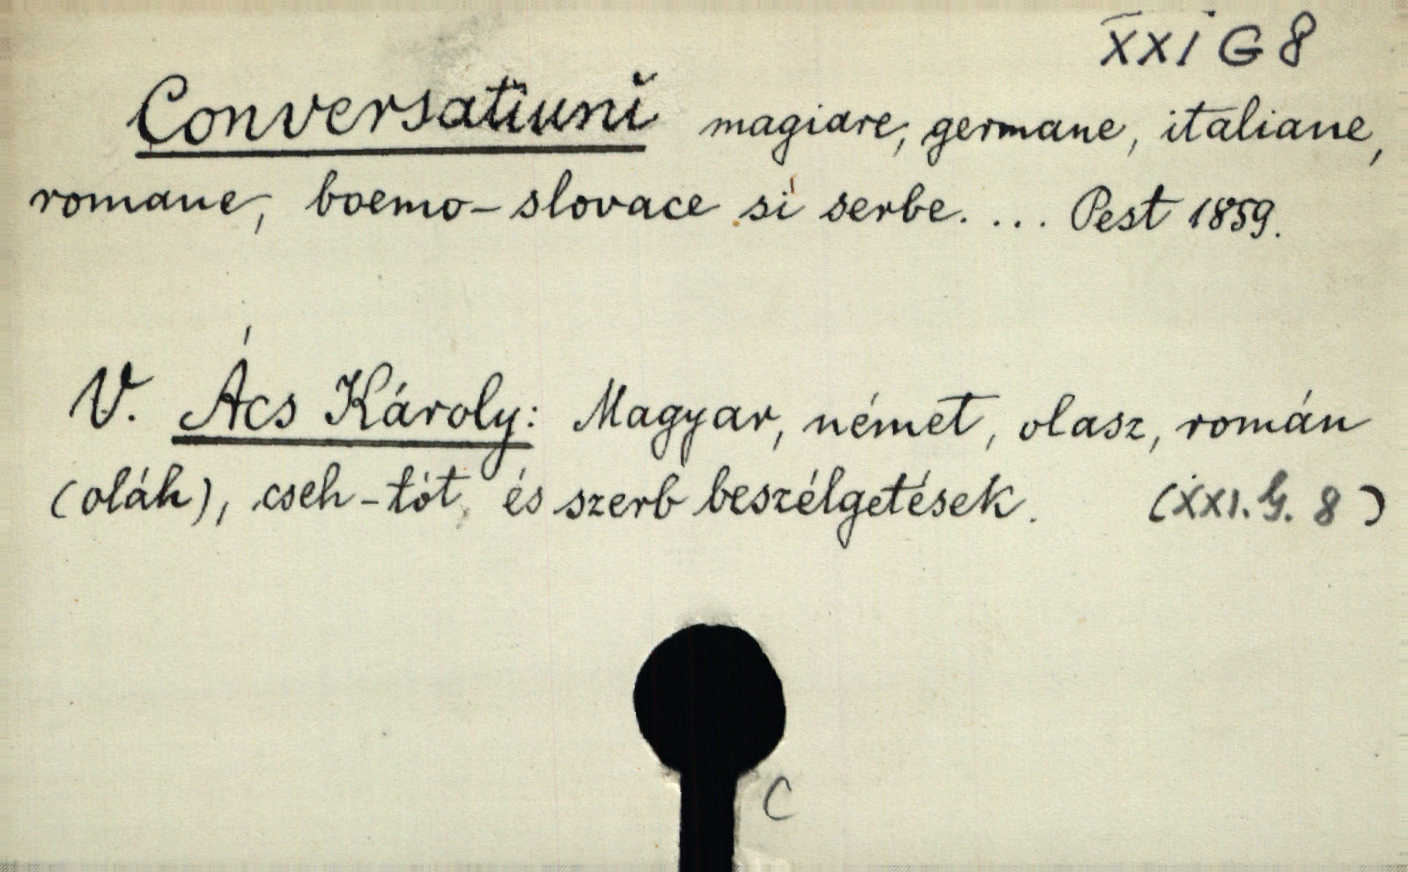 XXI G 8
Conversatiunĭ magiare, germane, italiane,
romane, boemo-slovace si serbe. ... Pest 1859.
V. Ács Károly: Magyar, német, olasz, román
(oláh), cseh-tót, és szerb beszélgetések. (XXI. G. 8)
C